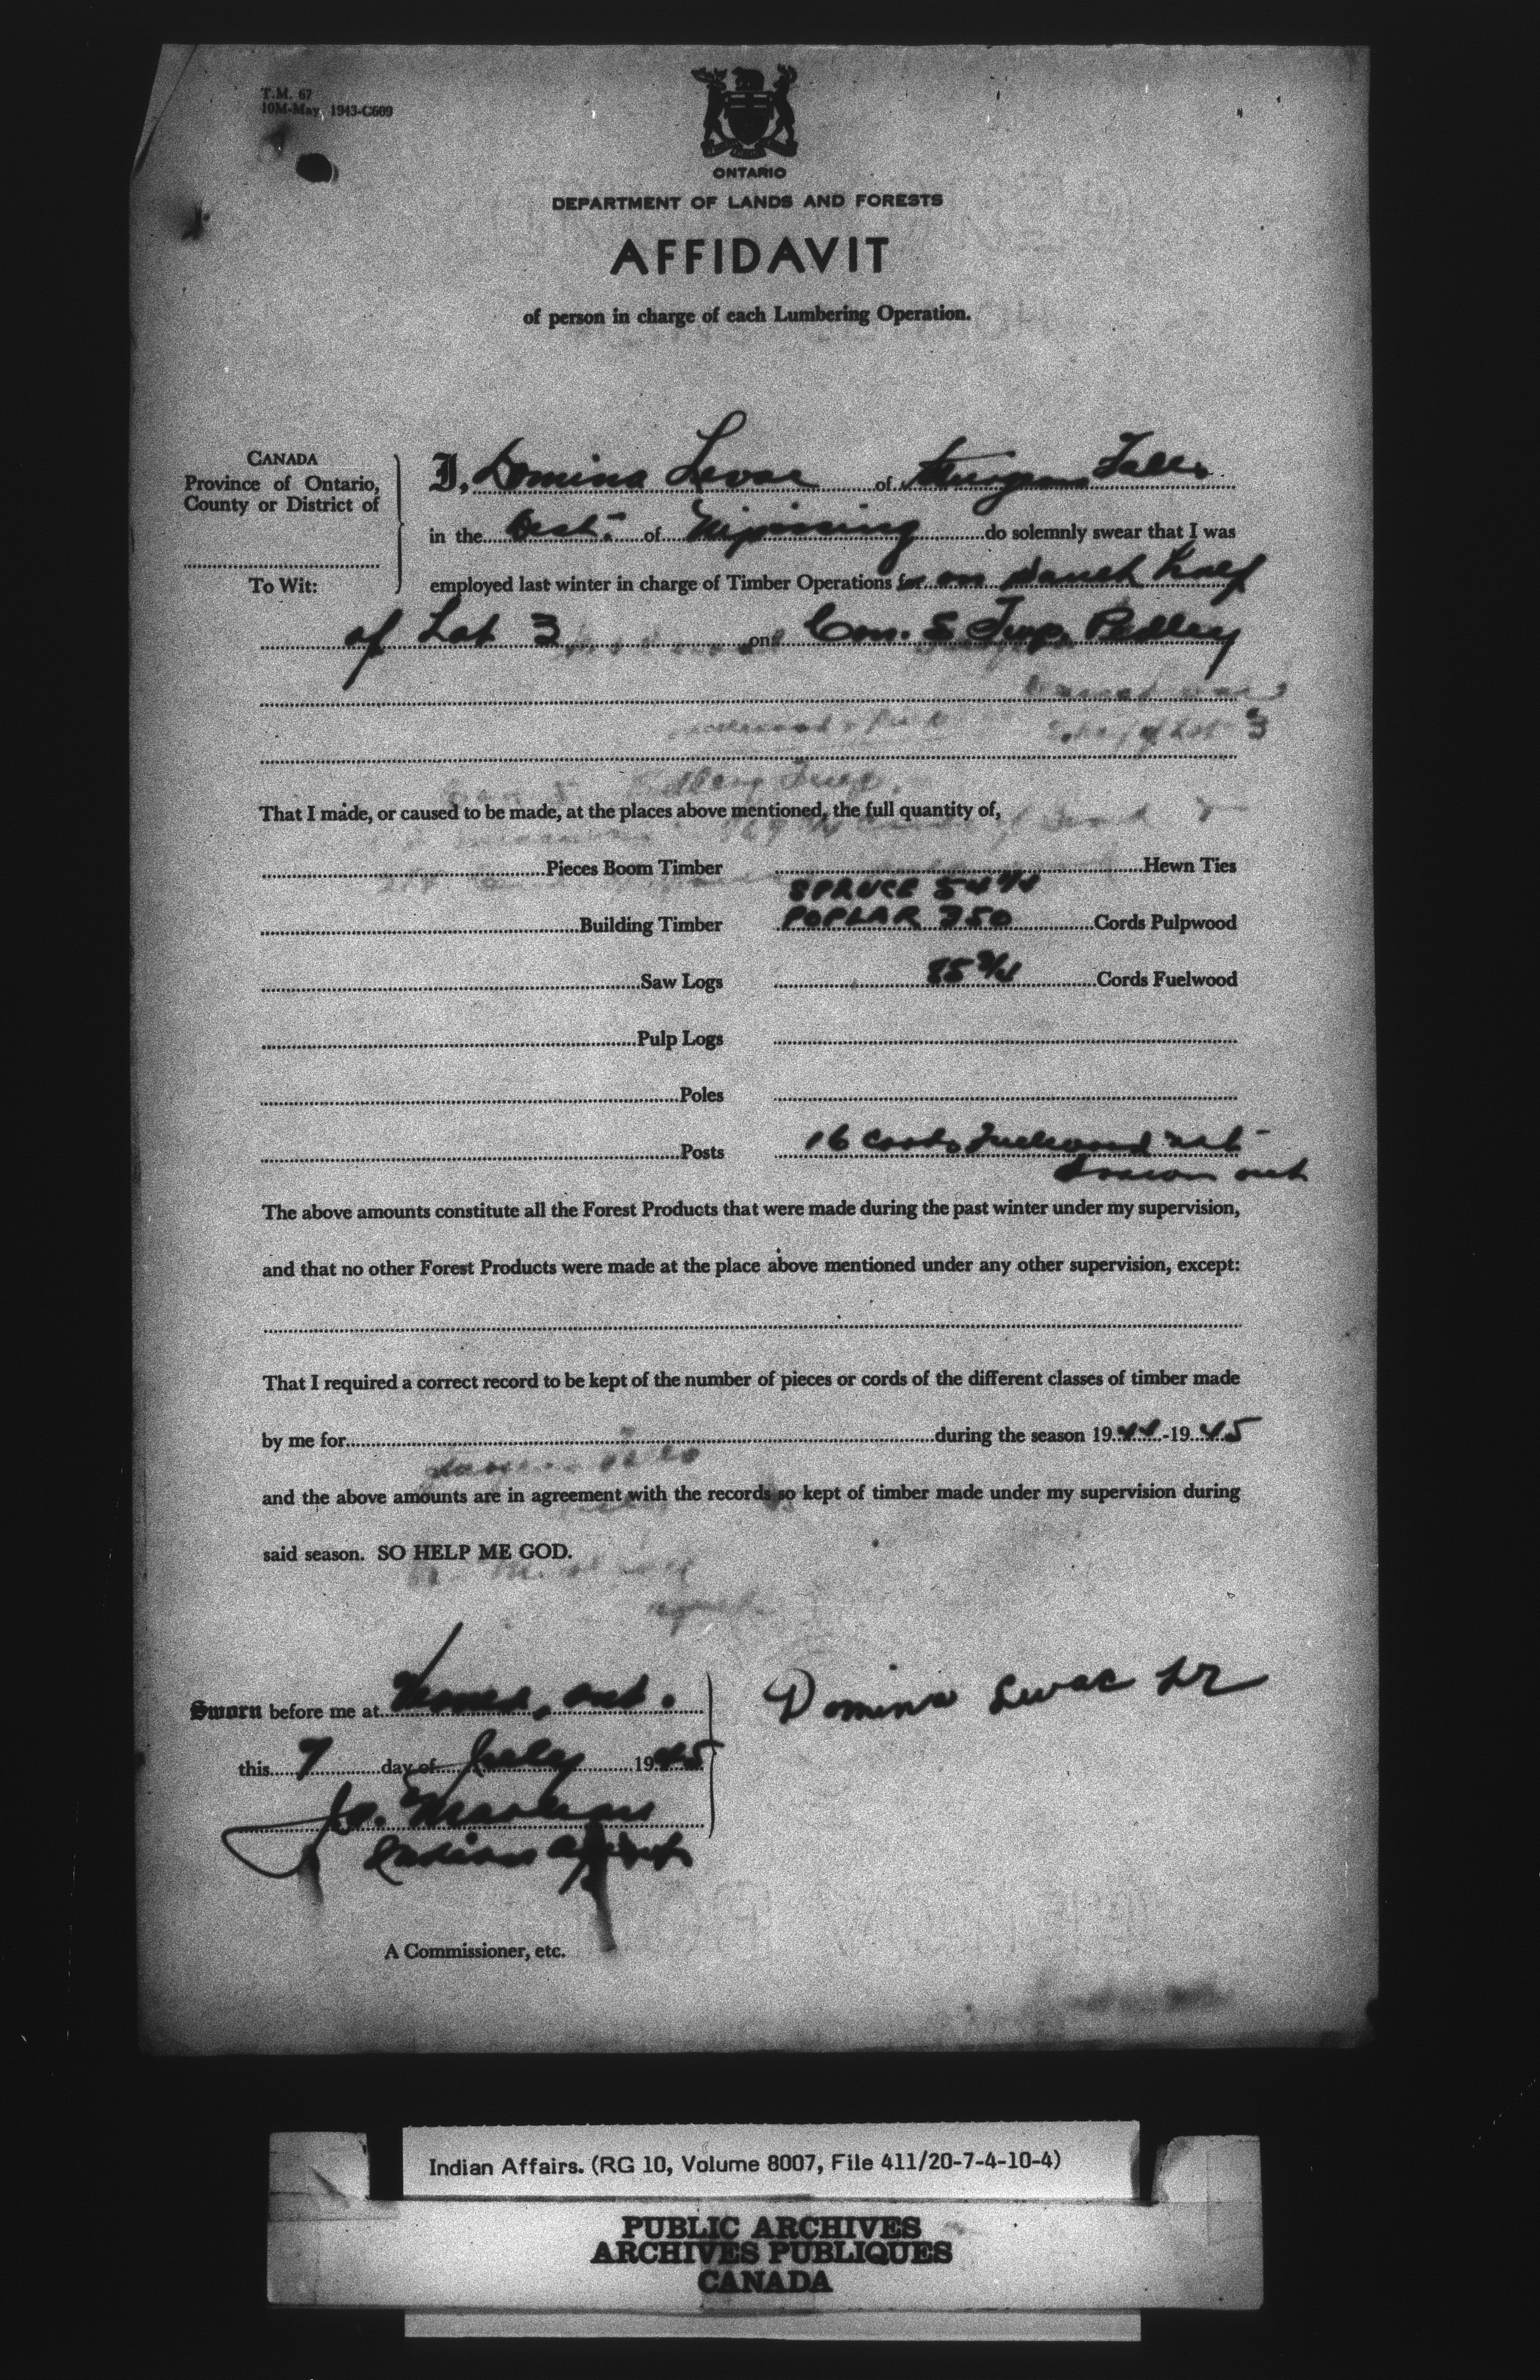 T.M. 67
10M-May, 1943-C609
ONTARIO
DEPARTMENT OF LANDS AND FORESTS
AFFIDAVIT
of person in charge of each Lumbering Operation.
CANADA
Province of Ontario,
County or District of
To Wit:
I, Domina Levac of Sturgeon Falls
in the Dist. of Nipissing do solemnly swear that I was
employed last winter in charge of Timber Operations for on South half
of Lot 3 on Con. 5 Twp. Pedley
of Lot 3
Pedley Twp.
That I made, or caused to be made, at the places above mentioned, the full quantity of,
Pieces Boom Timber Hewn Ties
SPRUCE 54
Building Timber POPLAR 750 Cords Pulpwood
Saw Logs 85 3/4 Cords Fuelwood
Pulp Logs
Poles
Posts 16 Cords Fuelwood not
drawn out
The above amounts constitute all the Forest Products that were made during the past winter under my supervision,
and that no other Forest Products were made at the place above mentioned under any other supervision, except:
That I required a correct record to be kept of the number of pieces or cords of the different classes of timber made
by me for during the season 1944-1945
and the above amounts are in agreement with the records so kept of timber made under my supervision during
said season. SO HELP ME GOD.
Sworn before me at Verner, Ont.
Domina Levac Sr
this 7 day of July 1945
J.A. Marleau
Indian Agent
A Commissioner, etc.
Indian Affairs. (RG 10, Volume 8007, File 411/20-7-4-10-4)
PUBLIC ARCHIVES
ARCHIVES PUBLIQUES
CANADA